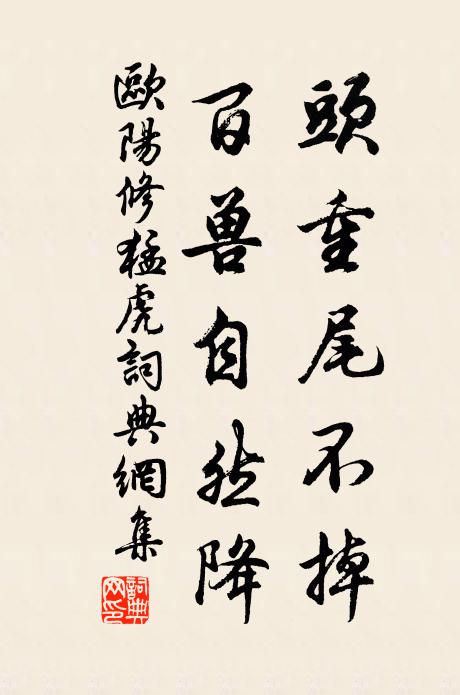 頭重尾不掉
百兽自然降
歐陽修猛虎詞典網集
詞典网印